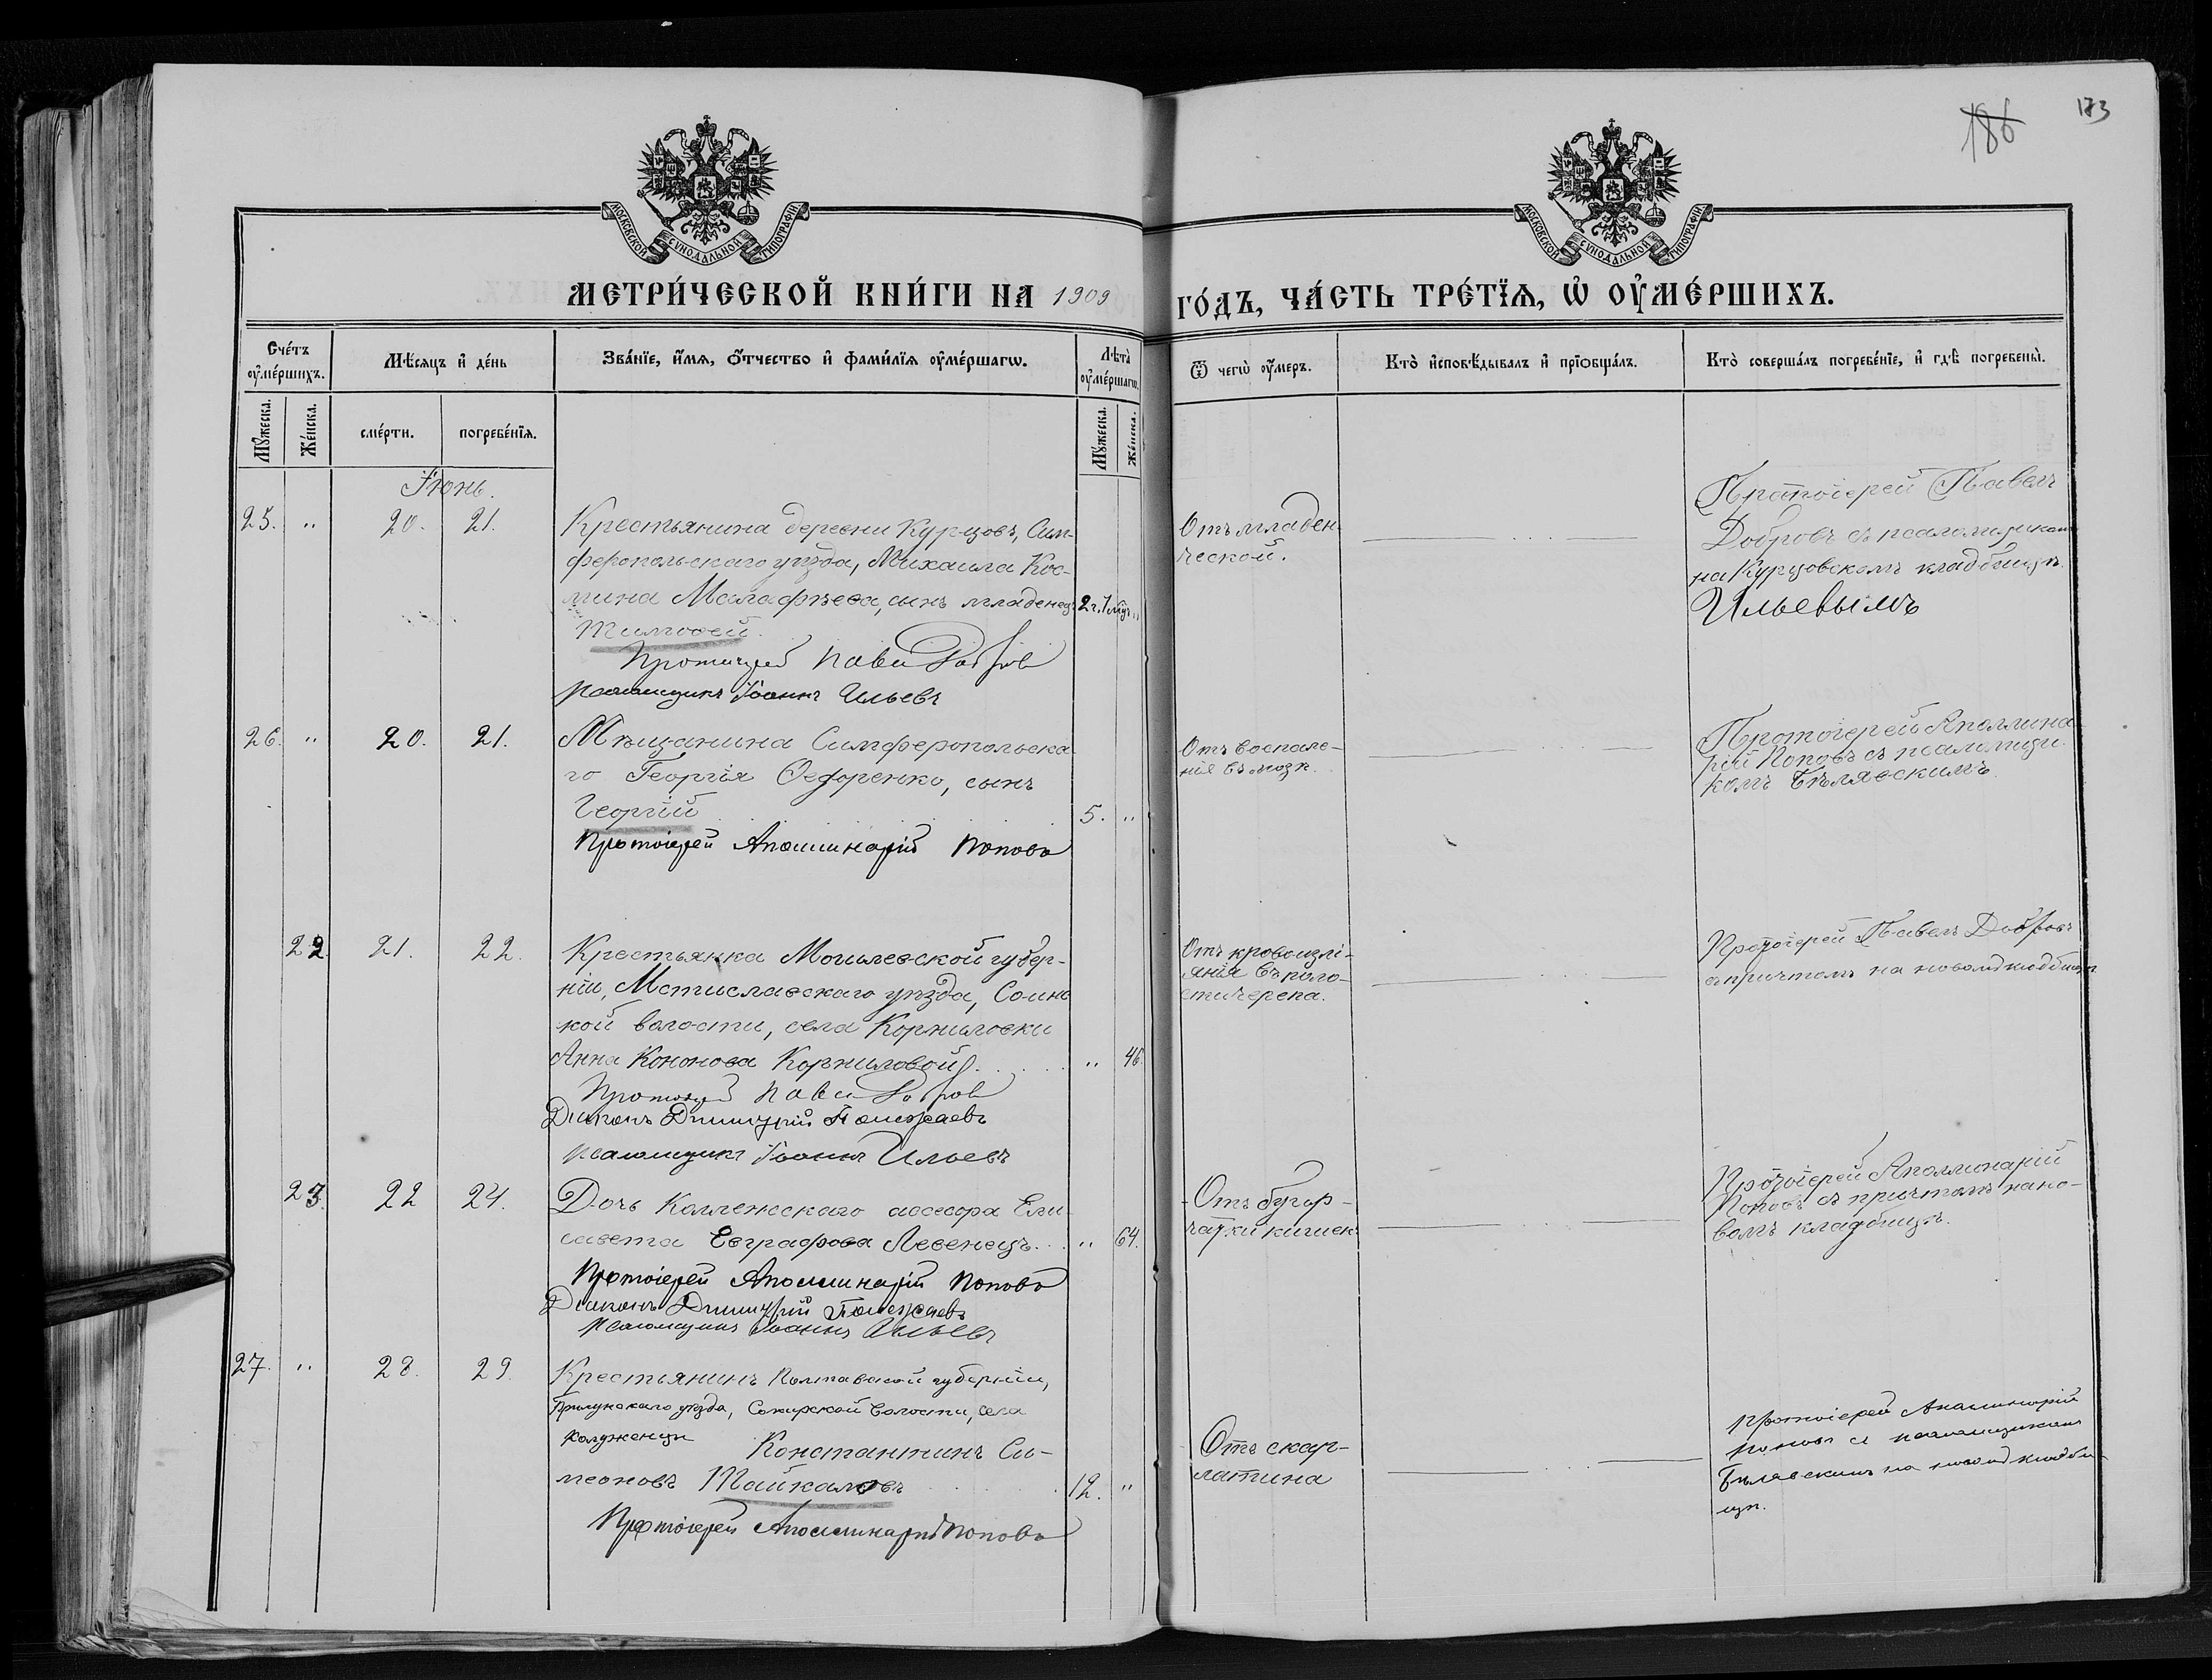 186
173
МОСКОВСКОЙ СУНОДАЛЬНОЙ ТИПОГРАФІИ
МОСКОВСКОЙ СУНОДАЛЬНОЙ ТИПОГРАФІИ
МЕТРИ́ЧЕСКОЙ КНИ́ГИ НА 1909 ГО́ДЪ, ЧА́СТЬ ТРЕ́ТЇѦ, Ѡ҆ ОУ҆МЕ́РШИХЪ.
Сче́тъ оу҆ме́ршихъ.
Мѣ́сяцъ и҆ де́нь
Зва́нїе, и҆́мя, ѻ҆́тчество и҆ фами́лїя оу҆ме́ршагѡ.
Лѣ́та оу҆ме́ршагѡ.
Ѿ чегѡ̀ оу҆́меръ.
Кто̀ и҆сповѣ́дывалъ и҆ прїѡбща́лъ.
Кто̀ соверша́лъ погребе́нїе, и҆ гдѣ̀ погребены̀.
Мꙋ́жеска.
Же́нска.
сме́рти.
погребе́нїя.
Мꙋ́жеска.
Же́нска.
Іюнь.
25. " 20. 21.
Крестьянина деревни Курцовъ, Сим-
феропольскаго уѣзда, Михаила Кос-
мина Малафѣева, сынъ младенецъ
Тимофей. 2 г. 1 мѣс. "
Протоіерей Павелъ Добровъ
Псаломщикъ Іоаннъ Ильевъ
Отъ младен-
ческой.
Протоіерей Павелъ
Добровъ съ псаломщикомъ
на Курцовскомъ кладбищѣ.
Ильевымъ
26. " 20. 21.
Мѣщанина Симферопольска-
го Георгія Ѳедоренко, сынъ
Георгій 5. "
Протоіерей Аполлинарій Поповъ
Отъ воспале-
нія въ мозг.
Протоіерей Аполлина-
рій Поповъ съ псаломщи-
комъ Бѣлявскимъ.
22. 21. 22.
Крестьянка Могилевской губер-
ніи, Мстиславскаго уѣзда,
кой волости, села Корниловки
Анна Кононова Корниловой. " 46.
Протоіерей Павелъ Добровъ
Діаконъ Димитрій Полежаевъ
Псаломщикъ Іоаннъ Ильевъ
Отъ кровоизлі-
янія въ поло-
сти черепа.
Протоіерей Павелъ Добровъ
съ причтомъ на новомъ кладбищѣ
23. 22 24.
Дочь Коллежскаго ассесора Ели-
савета Евграфова Левенецъ. " 64.
Протоіерей Аполлинарій Поповъ
Діаконъ Димитрій Полежаевъ
Псаломщикъ Іоаннъ Ильевъ
Отъ бугор-
чатки кишекъ
Протоіерей Аполлинарій
Поповъ съ причтомъ на но-
вомъ кладбищѣ.
27. " 28. 29.
Крестьянинъ Полтавской губерніи,
Прилукскаго уѣзда, волости, села
Константинъ Си-
меоновъ Тайкаловъ 12. "
Протоіерей Аполлинарій Поповъ
Отъ скар-
латина
Протоіерей Аполлинарій
Поповъ съ псаломщикомъ
Бѣлявскимъ на новомъ кладби-
щѣ.